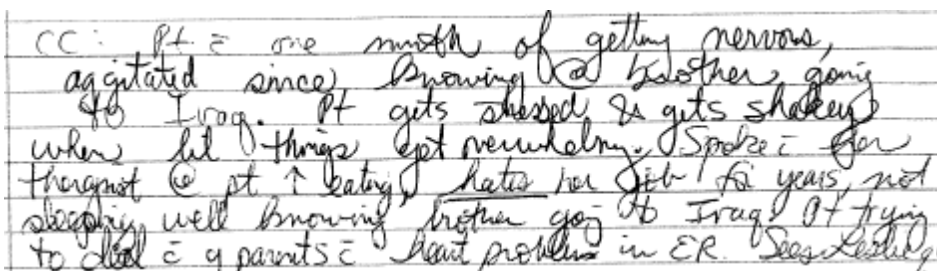 CC: Pt c̄ one month of getting nervous,
aggitated since knowing @ brother going
to Iraq. Pt gets stressed & gets shakey
when lil things get overwhelmg. Spoke c̄ her
therapist @ pt ↑ eating, hates her job for years, not
sleeping well knowing brother going to Iraq. Pt trying
to deal c̄ parents c̄ heart problems in ER. Sees